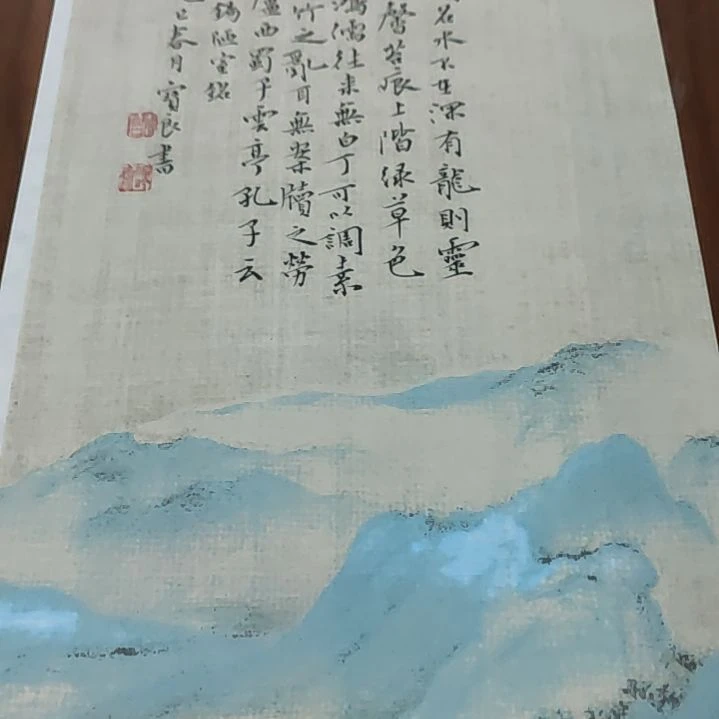 名水不在深有龍則靈
馨苔痕上階緑草色
鴻儒往来無白丁可以調素
竹之亂耳無案牘之勞
廬西蜀子雲亭孔子云
錫陋室銘
巳春月寶良書